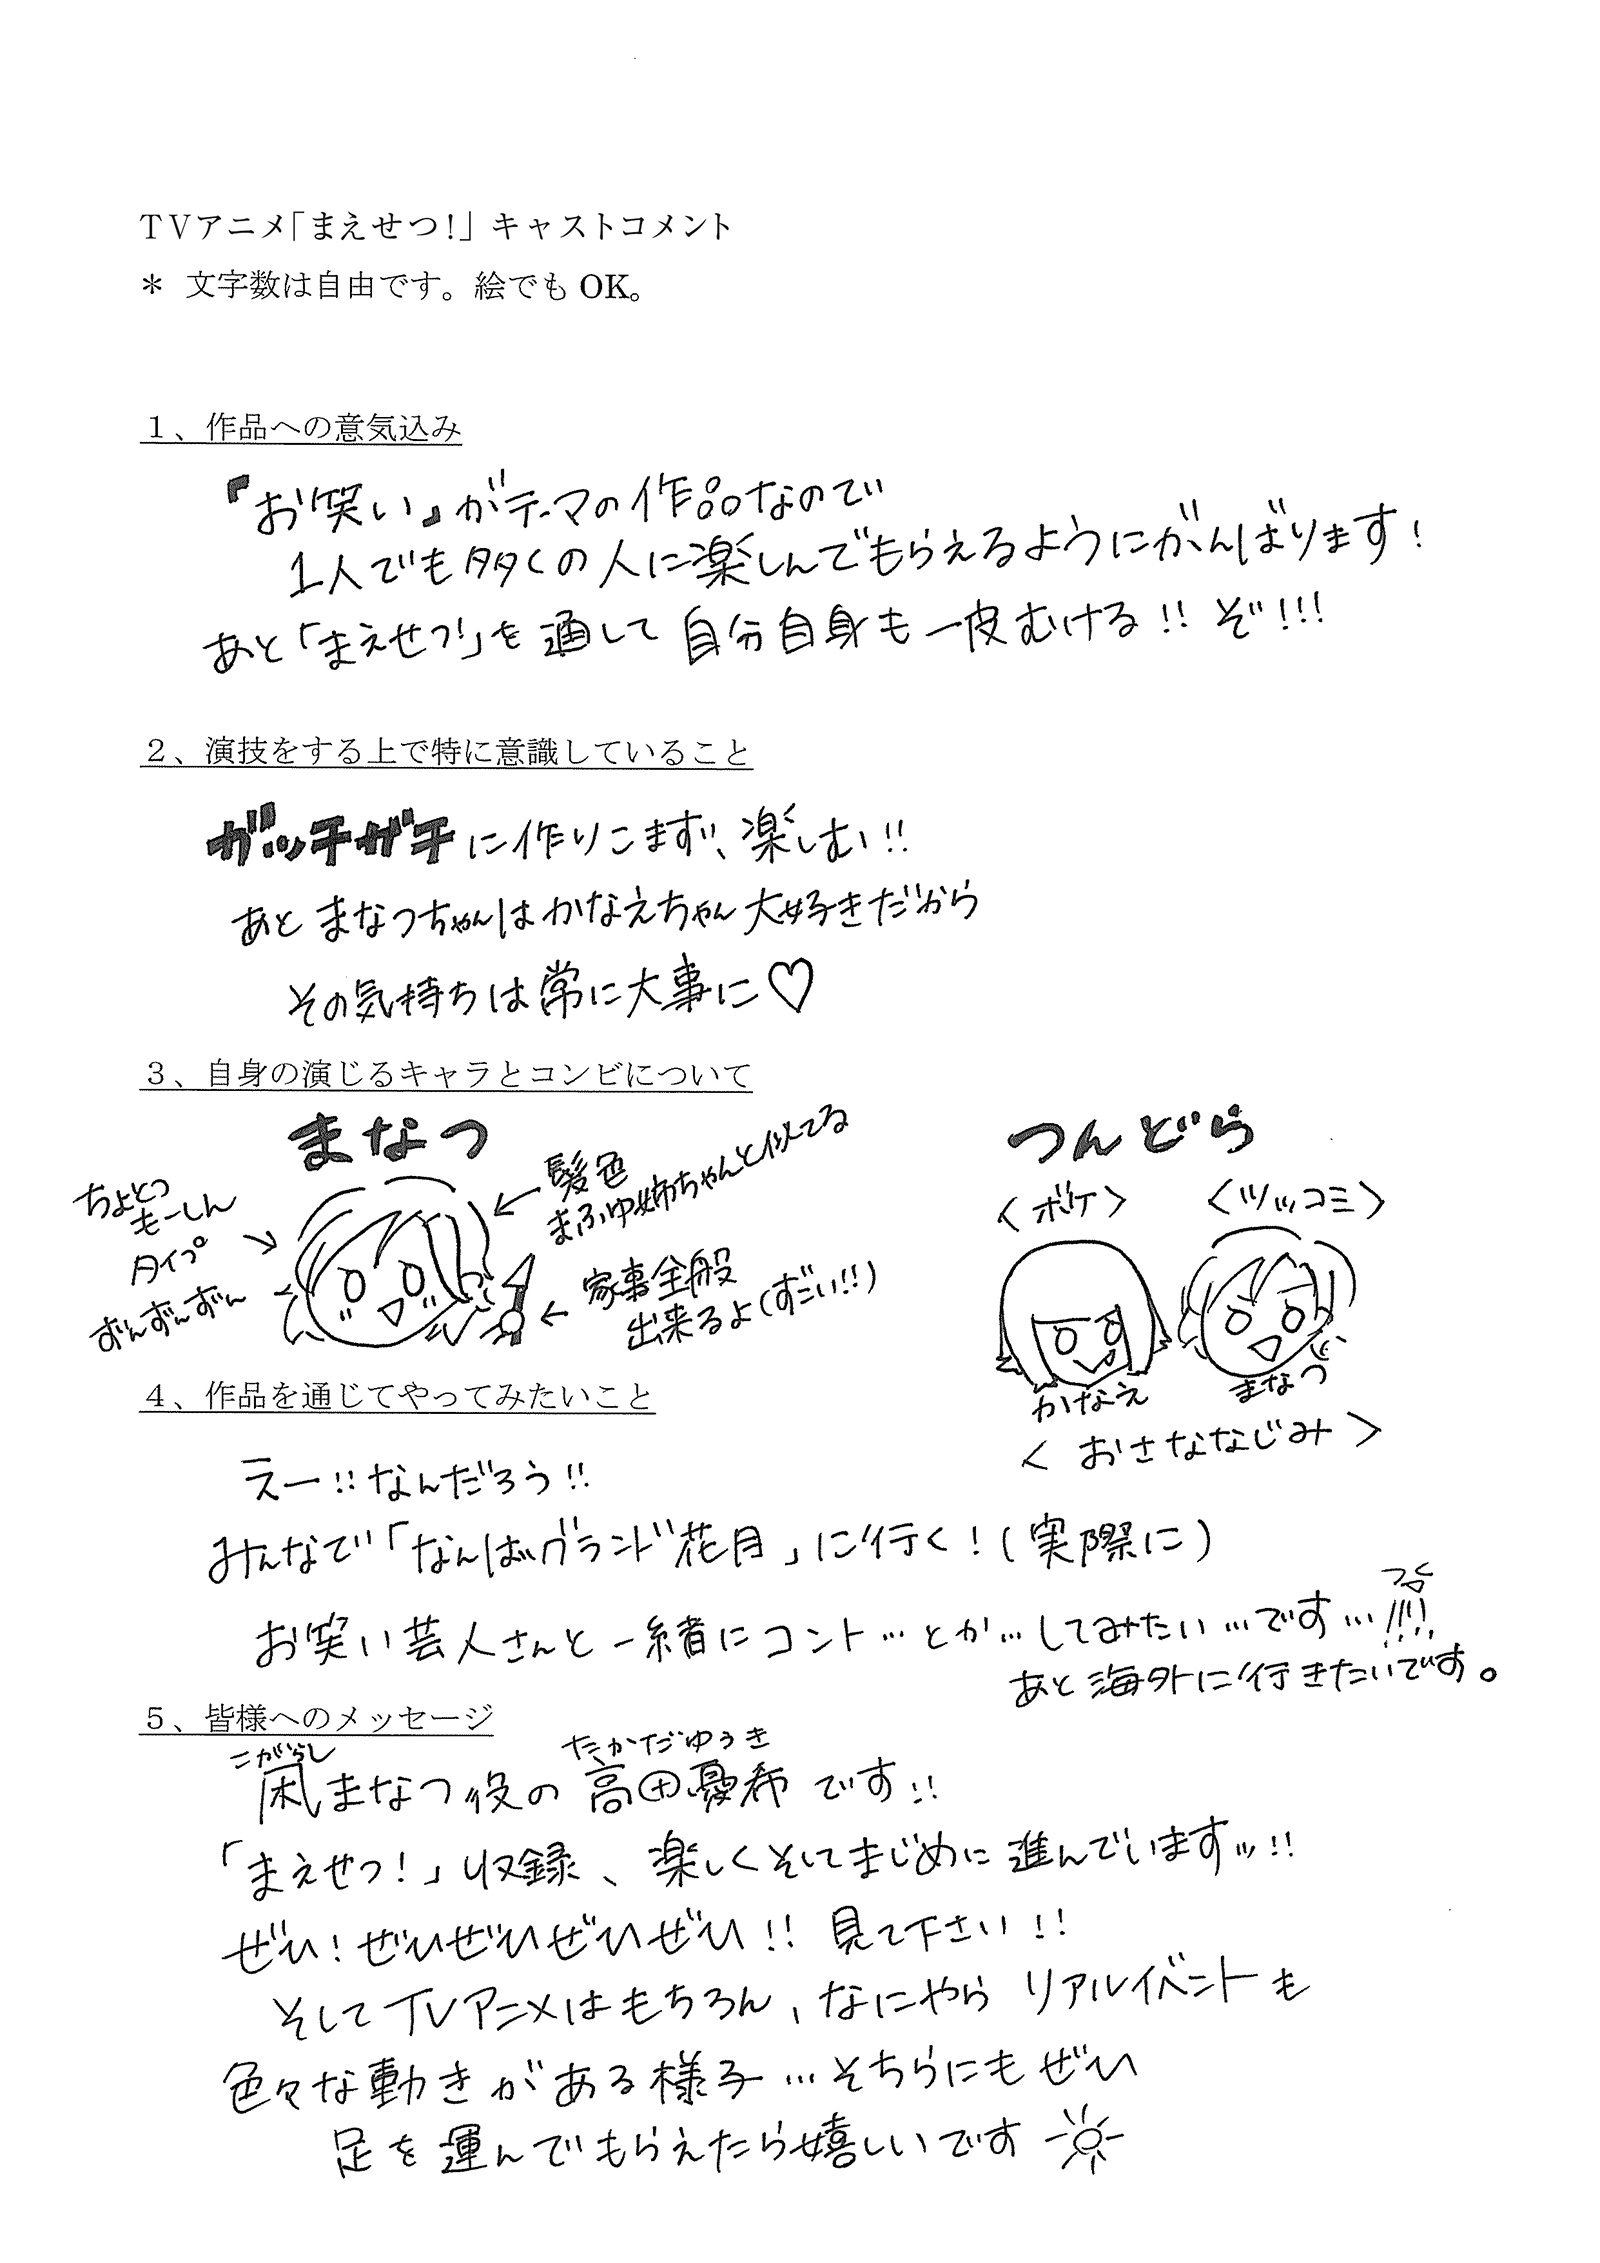 TVアニメ「まえせつ！」キャストコメント
＊ 文字数は自由です。絵でもOK。
１、作品への意気込み
『お笑い』がテーマの作品なので
1人でも多くの人に楽しんでもらえるようにがんばります！
あと「まえせつ！」を通して自分自身も一皮むける!! ぞ!!!
２、演技をする上で特に意識していること
ガッチガチに作りこまず、楽しむ!!
あとまなつちゃんはかなえちゃん大好きだから
その気持ちは常に大事に♡
３、自身の演じるキャラとコンビについて
まなつ
ちょとつ
もーしん
タイプ
ずんずんずん
髪色
まふゆ姉ちゃんと似てる
家事全般
出来るよ(すごい!!)
つんどら
〈ボケ〉
〈ツッコミ〉
かなえ
まなつ
〈おさななじみ〉
４、作品を通じてやってみたいこと
えー!!なんだろう!!
みんなで「なんばグランド花月」に行く！(実際に)
お笑い芸人さんと一緒にコント…とか…してみたい…です…!!!!
あと海外に行きたいです。
５、皆様へのメッセージ
こがらし たかだゆうき
凩まなつ役の高田憂希です!!
「まえせつ！」収録、楽しくそしてまじめに進んでいますッ!!
ぜひ！ぜひぜひぜひぜひ!! 見て下さい!!
そしてTVアニメはもちろん、なにやらリアルイベントも
色々な動きがある様子…そちらにもぜひ
足を運んでもらえたら嬉しいです